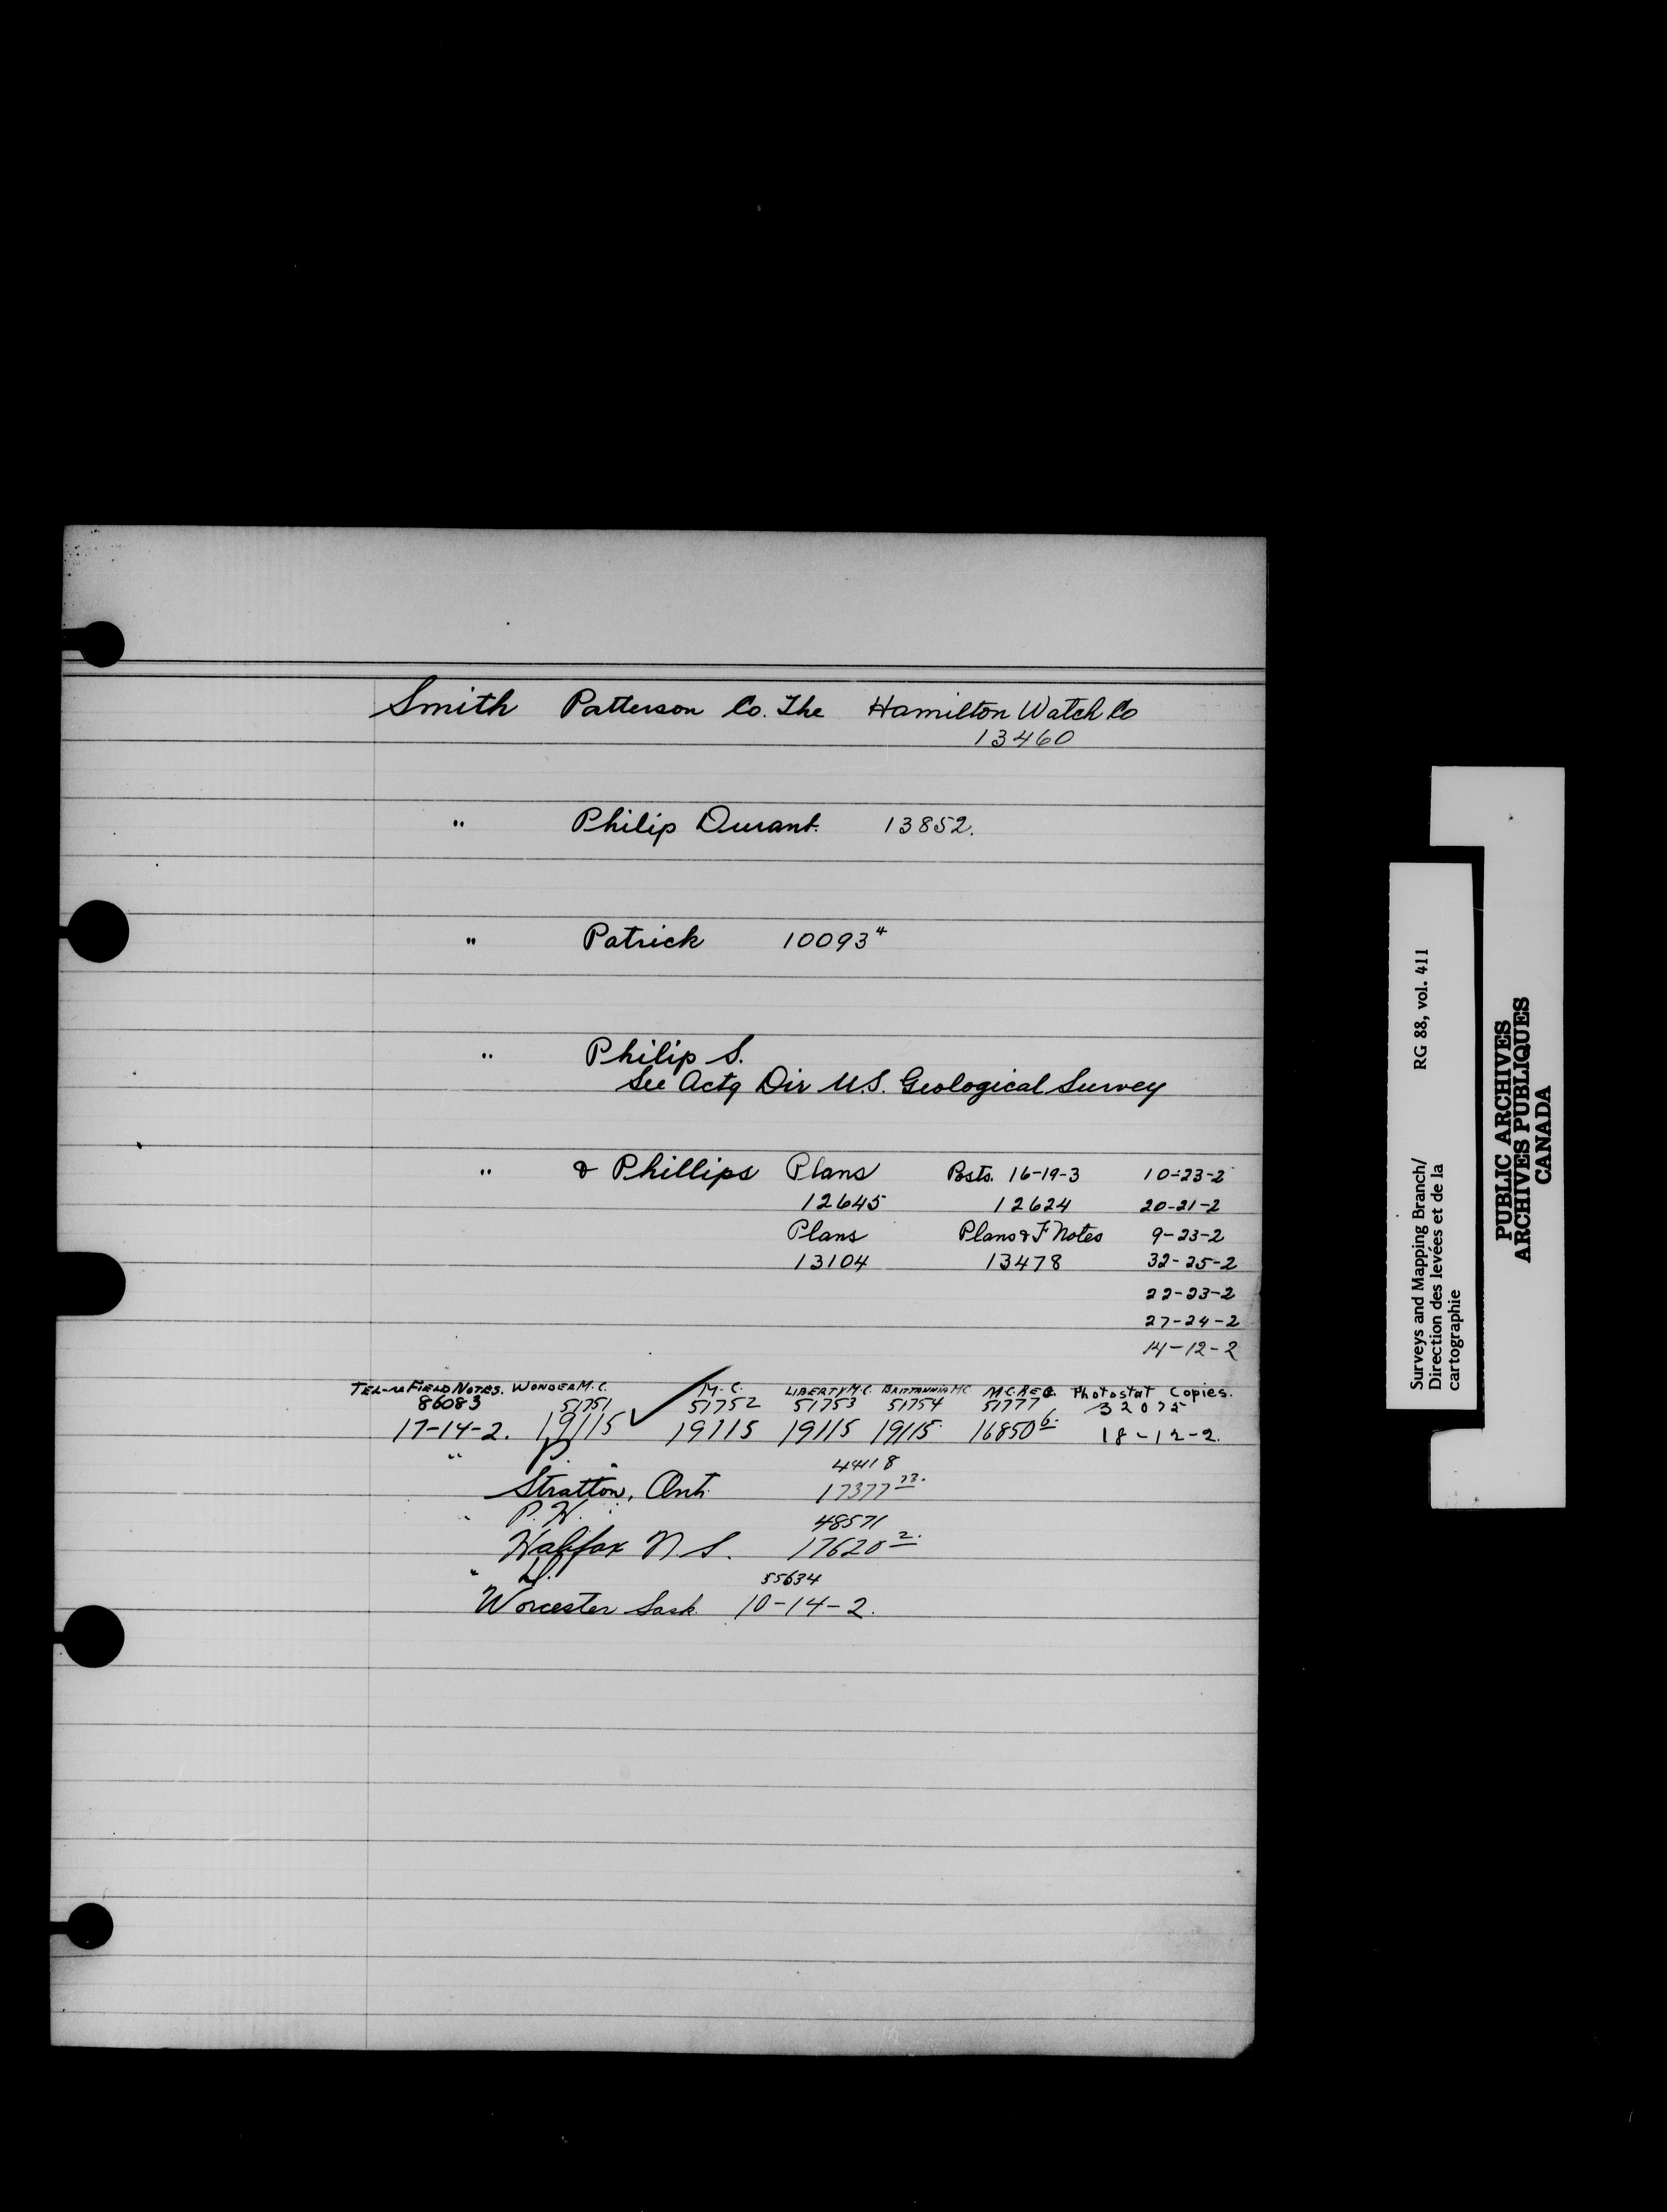 Smith Patterson Co. The Hamilton Watch Co
13460
" Philip Durant. 13852.
" Patrick 10093⁴
" Philip S.
See Actg Dir U.S. Geological Survey
" & Phillips Plans Posts. 16-19-3 10-23-2
12645 12624 20-21-2
Plans Plans & F Notes 9-23-2
13104 13478 32-25-2
22-23-2
27-24-2
14-12-2
FIELD NOTES. WONDER M.C. M.C. LIBERTY M.C. BRITTANNIA MC M.C. REG. Photostat Copies.
86083 51751 51752 51753 51754 51777 32075
17-14-2. 19115 ✓ 19115 19115 19115 16850⁶· 18-12-2.
" P. " 44418
Stratton, Ont. 17377²³·
" P. H. 48571
Halifax N.S. 17620²·
" 55634
Worcester Sask. 10-14-2.
Surveys and Mapping Branch/ RG 88, vol. 411
Direction des levées et de la
cartographie
PUBLIC ARCHIVES
ARCHIVES PUBLIQUES
CANADA